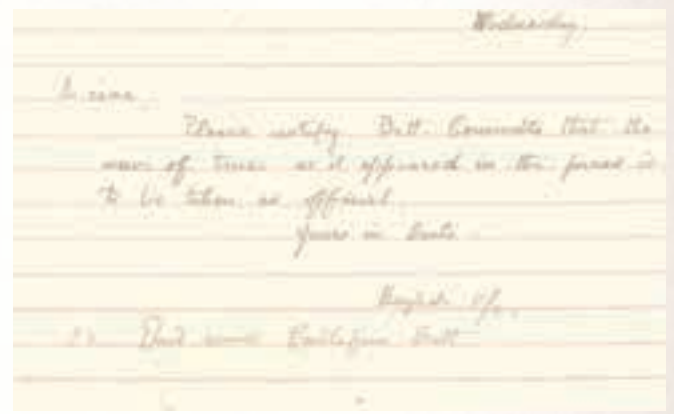 Wednesday.
A cara
Please notify Batt. Comdts that the
news of Truce as it appeared in the press is
to be taken as official
Yours in
Batt